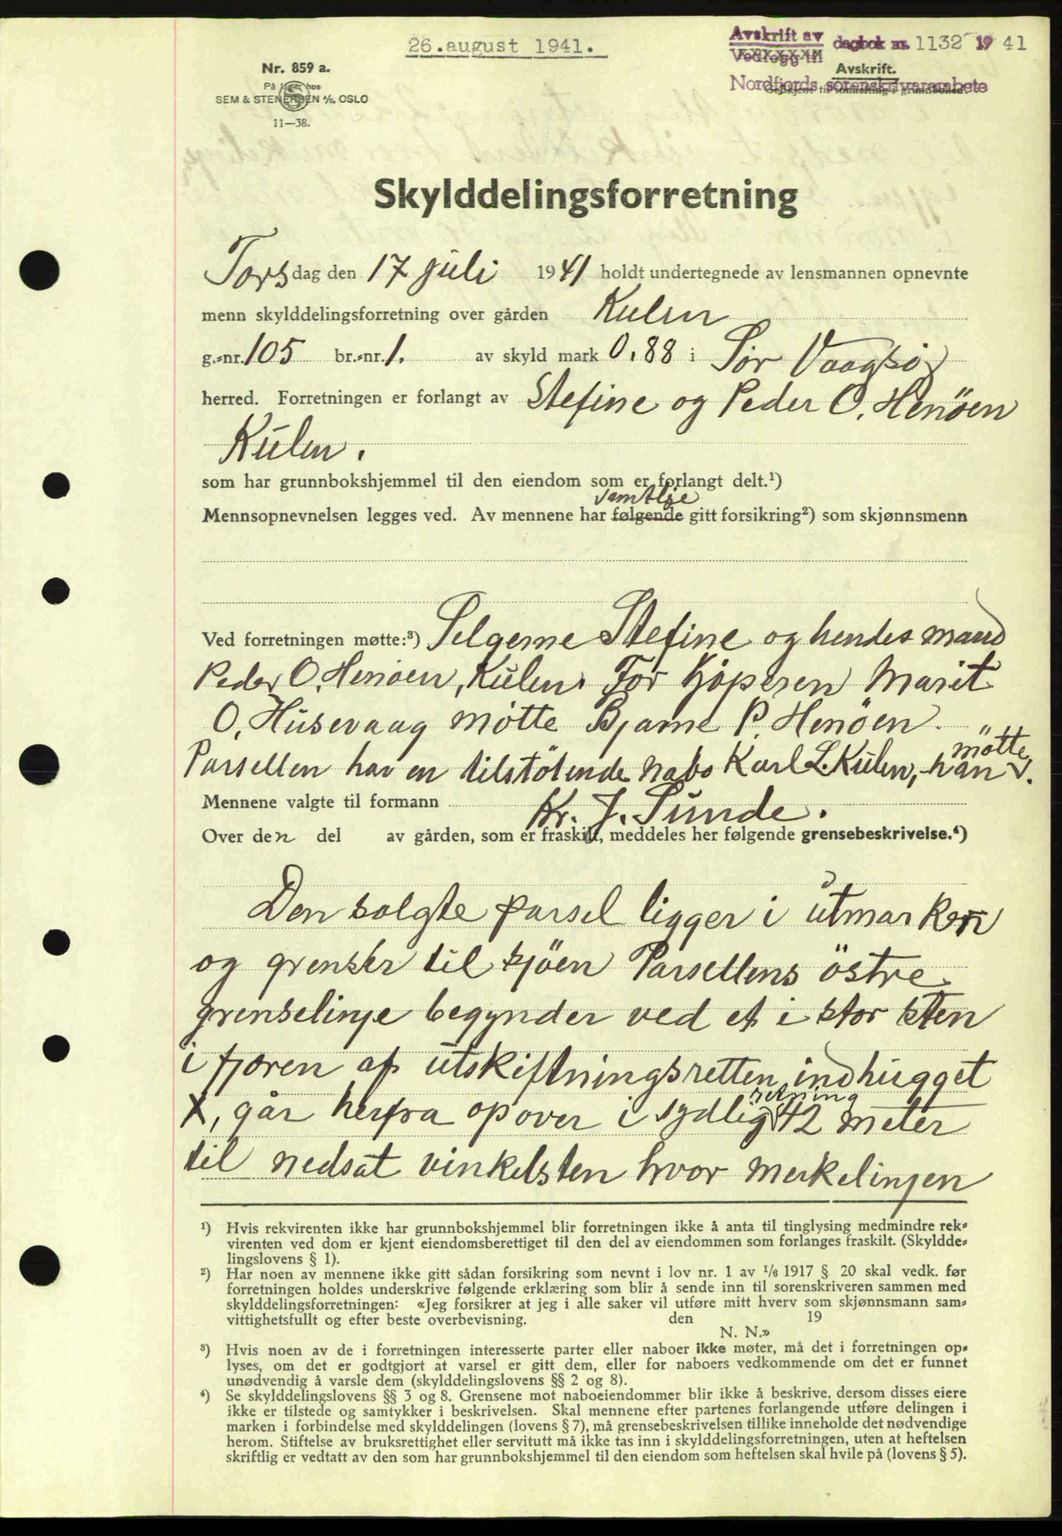 26.august 1941.
Avskrift av dagbok nr. 1132 1941
Vedlegg til
Avskrift.
Nordfjords sorenskrivarembete
Nr. 859 a.
På lager hos
SEM & STENERSEN A/S, OSLO
11—38.
Skylddelingsforretning
Torsdag den 17 juli 1941 holdt undertegnede av lensmannen opnevnte
menn skylddelingsforretning over gården Kulen
g.-nr. 105 br.-nr. 1. av skyld mark 0.88 i Sør Vaagsøy
herred. Forretningen er forlangt av Stefine og Peder O. Henöen
Kulen.
som har grunnbokshjemmel til den eiendom som er forlangt delt.¹)
samtlige
Mennsopnevnelsen legges ved. Av mennene har følgende gitt forsikring²) som skjønnsmenn
Ved forretningen møtte:³) Selgerne Stefine og hendes mand
Peder O. Henöen, Kulen. For kjöperen Marit
O. Husevaag mötte Bjarne P. Henöen.
mötte
Parsellen har en tilstötende nabo Karl L. Kulen, han.
Mennene valgte til formann Kr. J. Sunde.
Over den del av gården, som er fraskilt, meddeles her følgende grensebeskrivelse.⁴)
Den solgte parsel ligger i utmarken
og grenser til sjöen Parsellens östre
grenselinje begynder ved et i stor sten
i fjæren af utskiftningsretten indhugget
retning
X, går herfra opover i sydlig 42 meter
til nedsat vinkelsten hvor merkelinjen
¹) Hvis rekvirenten ikke har grunnbokshjemmel blir forretningen ikke å anta til tinglysing medmindre rek-
virenten ved dom er kjent eiendomsberettiget til den del av eiendommen som forlanges fraskilt. (Skyldde-
lingslovens § 1).
²) Har noen av mennene ikke gitt sådan forsikring som nevnt i lov nr. 1 av 1/6 1917 § 20 skal vedk. før
forretningen holdes underskrive følgende erklæring som blir å sende inn til sorenskriveren sammen med
skylddelingsforretningen: «Jeg forsikrer at jeg i alle saker vil utføre mitt hverv som skjønnsmann sam-
vittighetsfullt og efter beste overbevisning. den 19
N. N.»
³) Hvis noen av de i forretningen interesserte parter eller naboer ikke møter, må det i forretningen op-
lyses, om det er godtgjort at varsel er gitt dem, eller for naboers vedkommende om det er funnet
unødvendig å varsle dem (skylddelingslovens §§ 2 og 8).
⁴) Se skylddelingslovens §§ 3 og 8. Grensene mot naboeiendommer blir ikke å beskrive, dersom disses eiere
ikke er tilstede og samtykker i beskrivelsen. Skal mennene efter partenes forlangende utføre delingen i
marken i forbindelse med skylddelingen (lovens § 7), må grensebeskrivelsen tillike inneholde det nødvendige
herom. Stiftelse av bruksrettighet eller servitutt må ikke tas inn i skylddelingsforretningen, uten at heftelsen
skriftlig er vedtatt av den som har grunnbokshjemmel til den eiendom som heftelsen skal hvile på (lovens § 5).